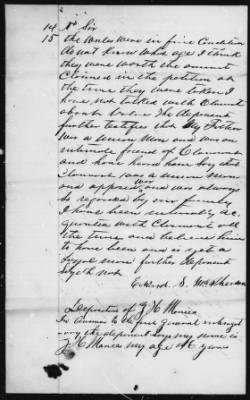 14 No Sir
15 the Mules were in fine Condition
do not know what age I think
they were worth the amount
Claimed in the petition at
the time they were taken I
have not talked with Claimant
about value The deponent
further testifies that My Father
was a union Man and was an
intimate friend of Claimant
and have heard him say that
Claimant was a union man
and opposed war and was always
so regarded by our family
I have been intimately ac
quainted with Claimant all
the time and believe him
to have been and is yet a
Loyal man further deponent
sayeth not
Edward S.
Deposition of J H Mances
In answer to the first general interrogat
-ory the deponent says my name is
J H Mances my age 46 years